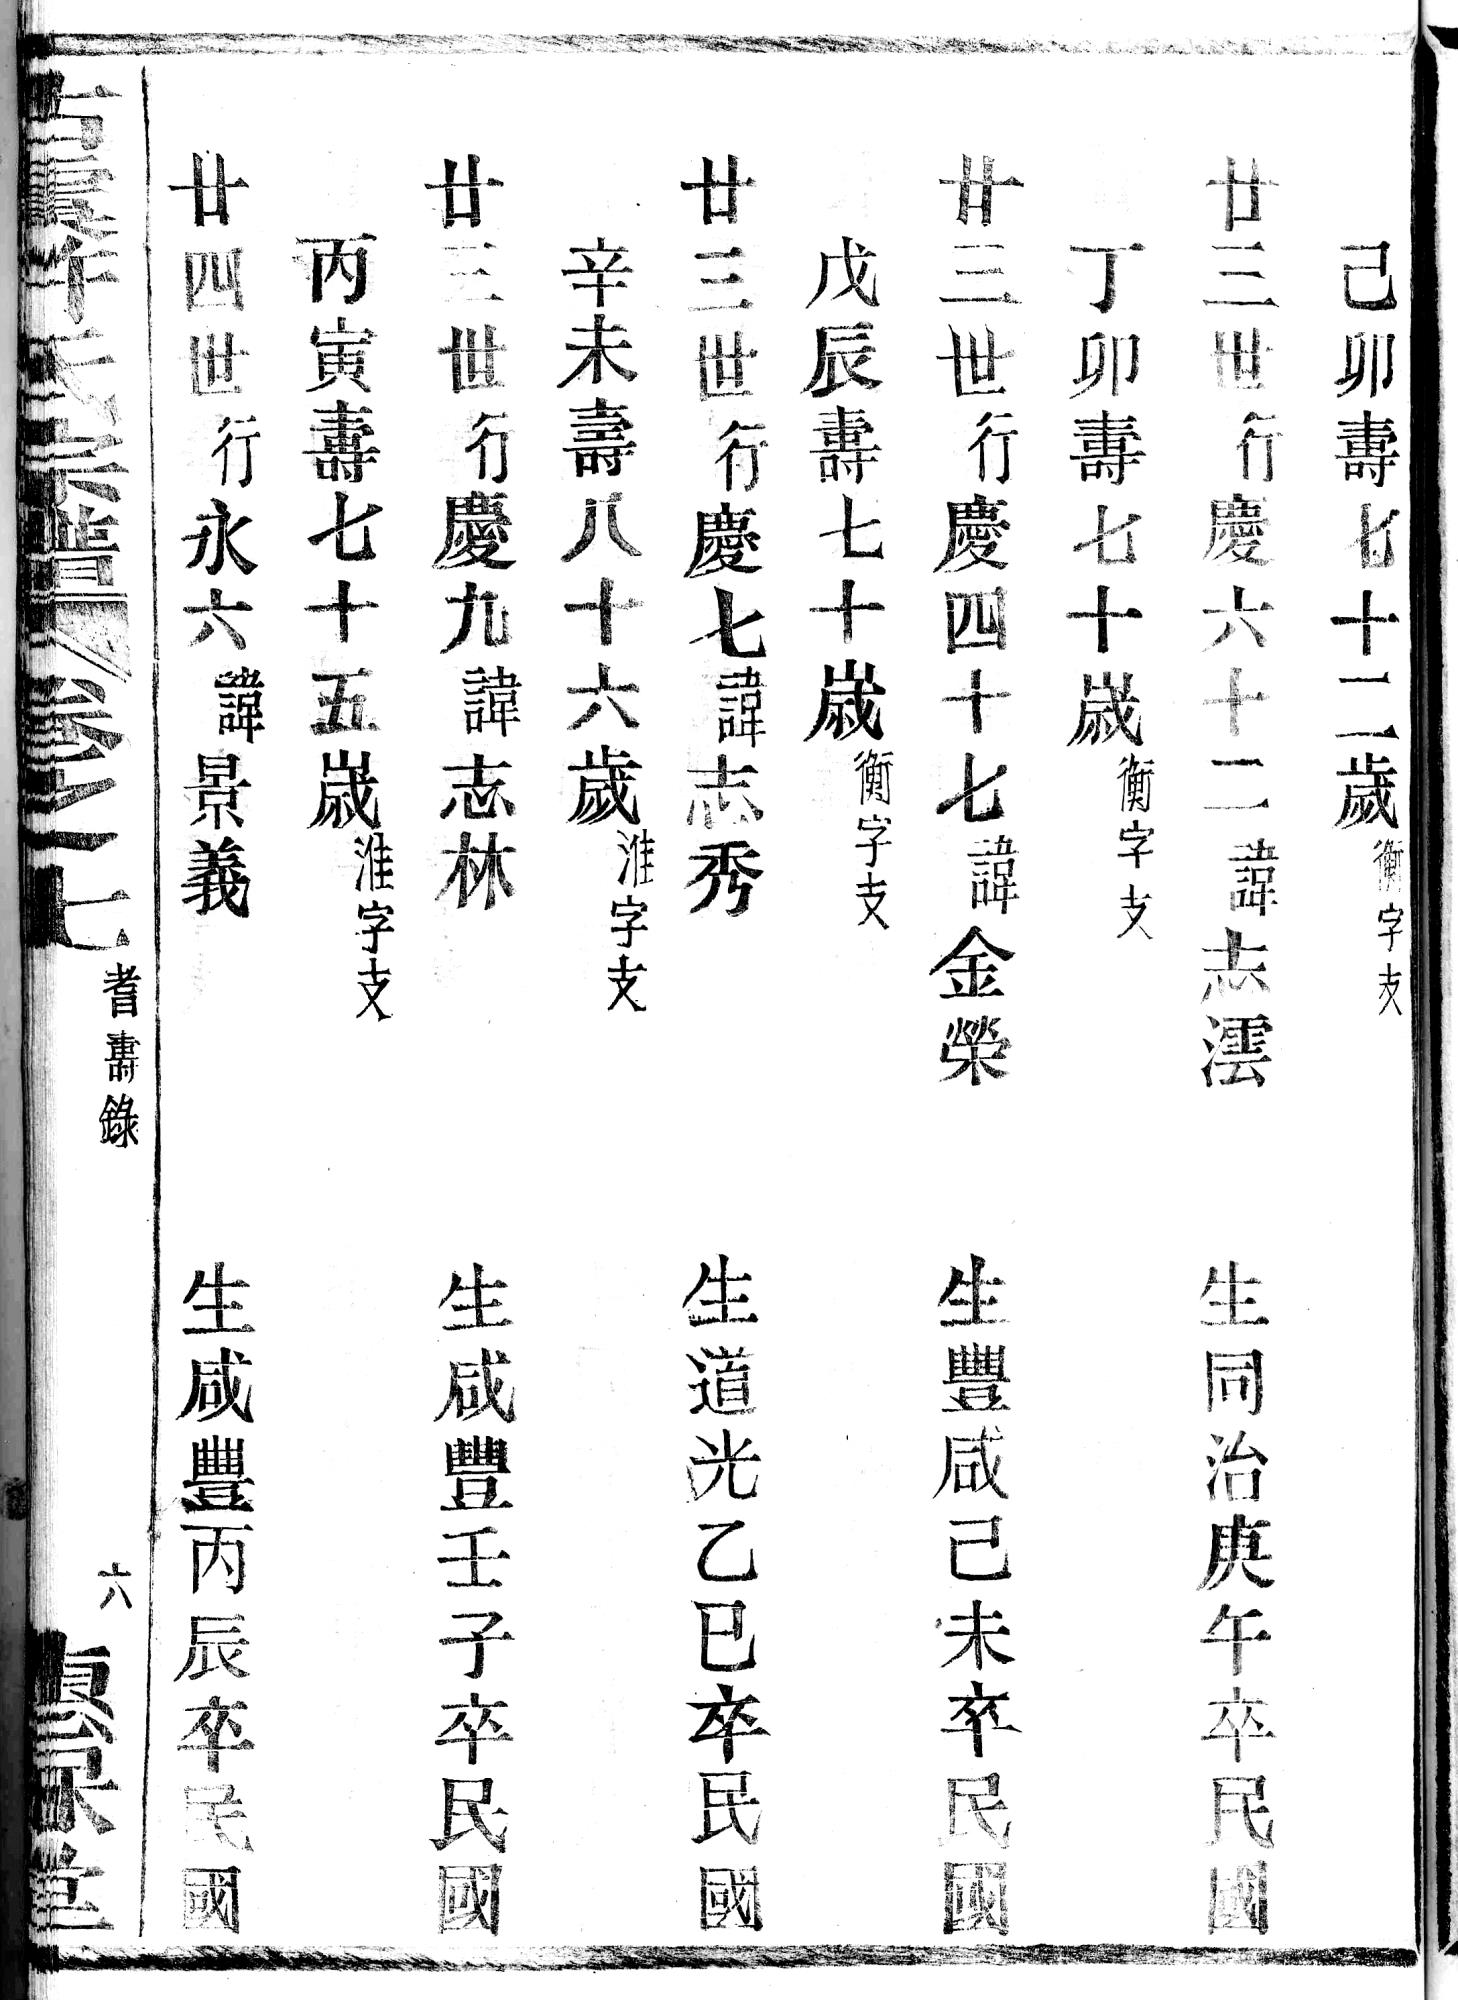 己卯壽七十二歲衡字支
廿三世行慶六十二諱志澐 生同治庚午卒民國
丁卯壽七十歲衡字支
廿三世行慶四十七諱金榮 生豐咸己未卒民國
戊辰壽七十歲衡字支
廿三世行慶七諱志秀 生道光乙巳卒民國
辛未壽八十六歲淮字支
廿三世行慶九諱志林 生咸豐壬子卒民國
丙寅壽七十五歲淮字支
廿四世行永六諱景義 生咸豐丙辰卒民國
氏宗譜 卷之七 耆壽錄 六 堂